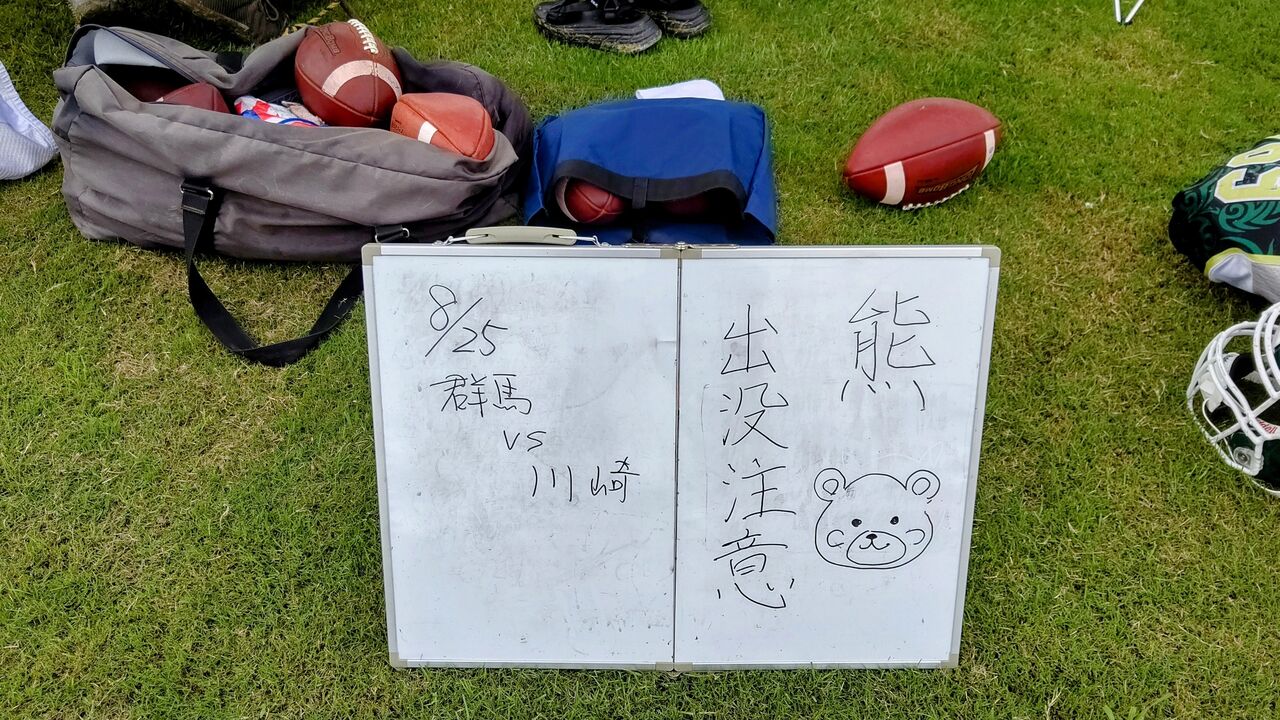 8/25
群馬
vs
川崎
熊
出没注意